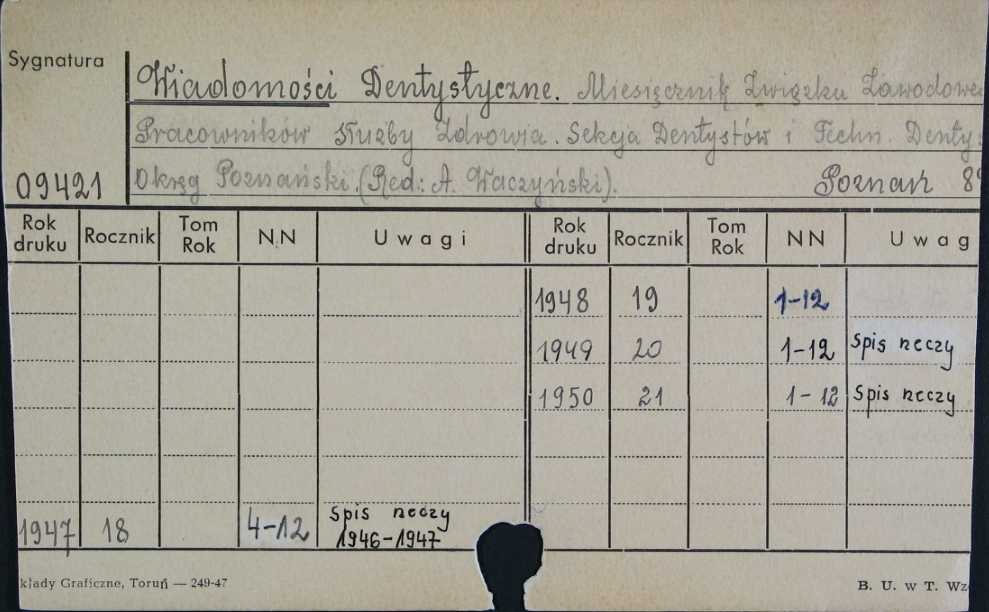 Sygnatura
Wiadomości Dentystyczne. Miesięcznik Związku Zawodowe
Pracowników Służby Zdrowia. Sekcja Dentystów i Techn. Denty
09421 Okręg Poznański. (Red: A. Waczyński). Poznań 8
Rok druku Rocznik Tom Rok NN Uwagi Rok druku Rocznik Tom Rok NN Uwag
1948 19 1-12
1949 20 1-12 Spis rzeczy
1950 21 1-12 Spis rzeczy
1947 18 4-12 Spis rzeczy
1946-1947
kłady Graficzne, Toruń — 249-47 B. U. w T. Wz